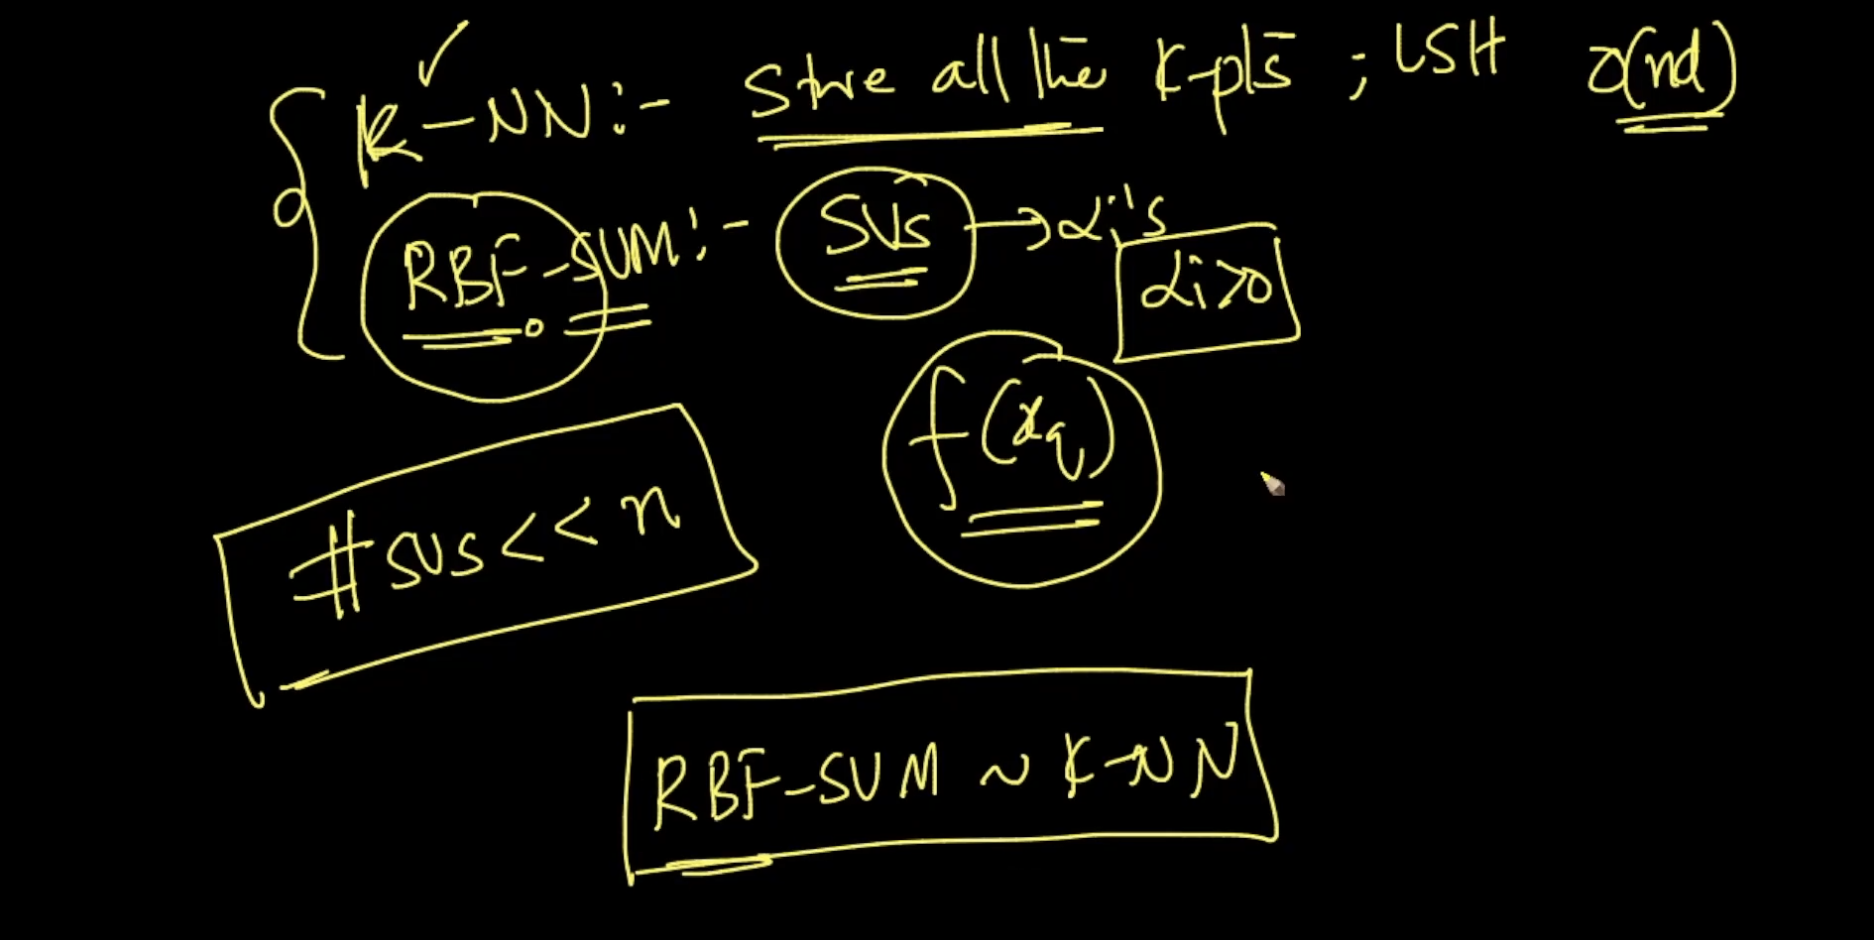 K-NN:- Store all the K-pts ; LSH O(nd)
RBF-SVM:- SVs → αi's
αi>0
f(xq)
#SVs<<n
RBF-SVM ~ K-NN